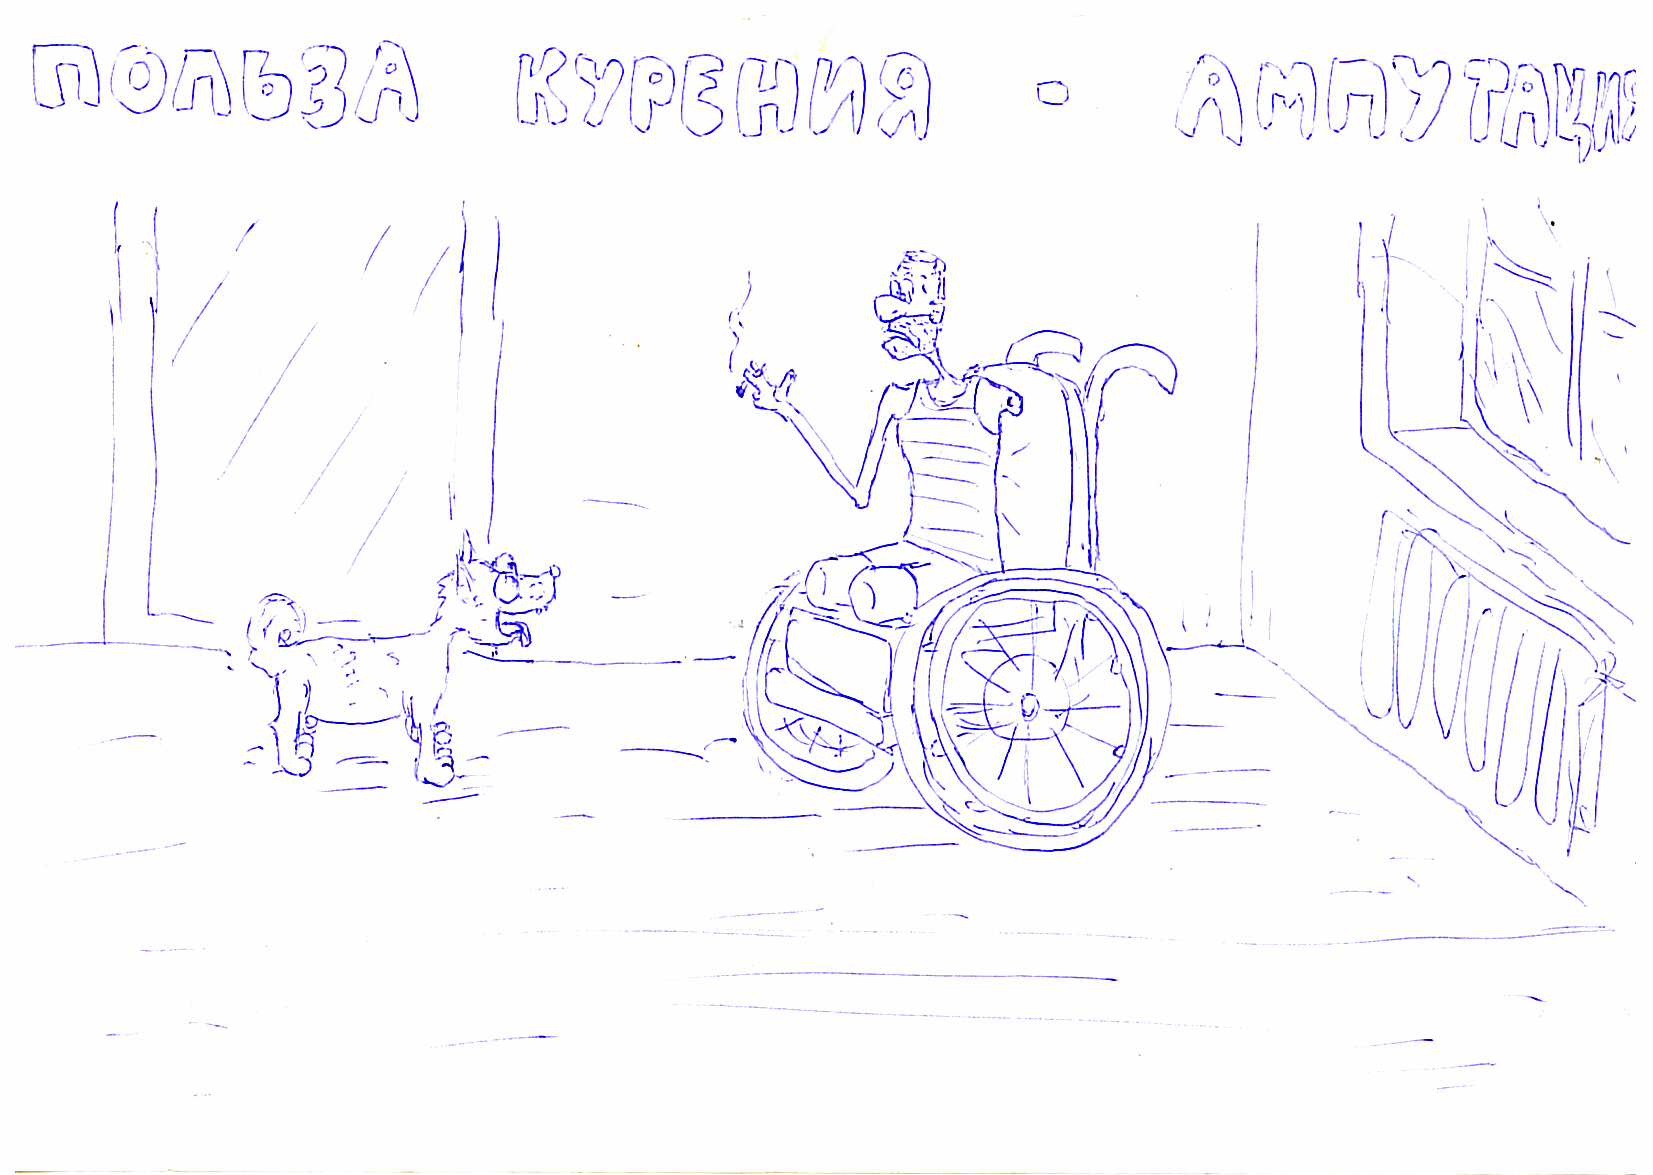 ПОЛЬЗА КУРЕНИЯ - АМПУТАЦИЯ